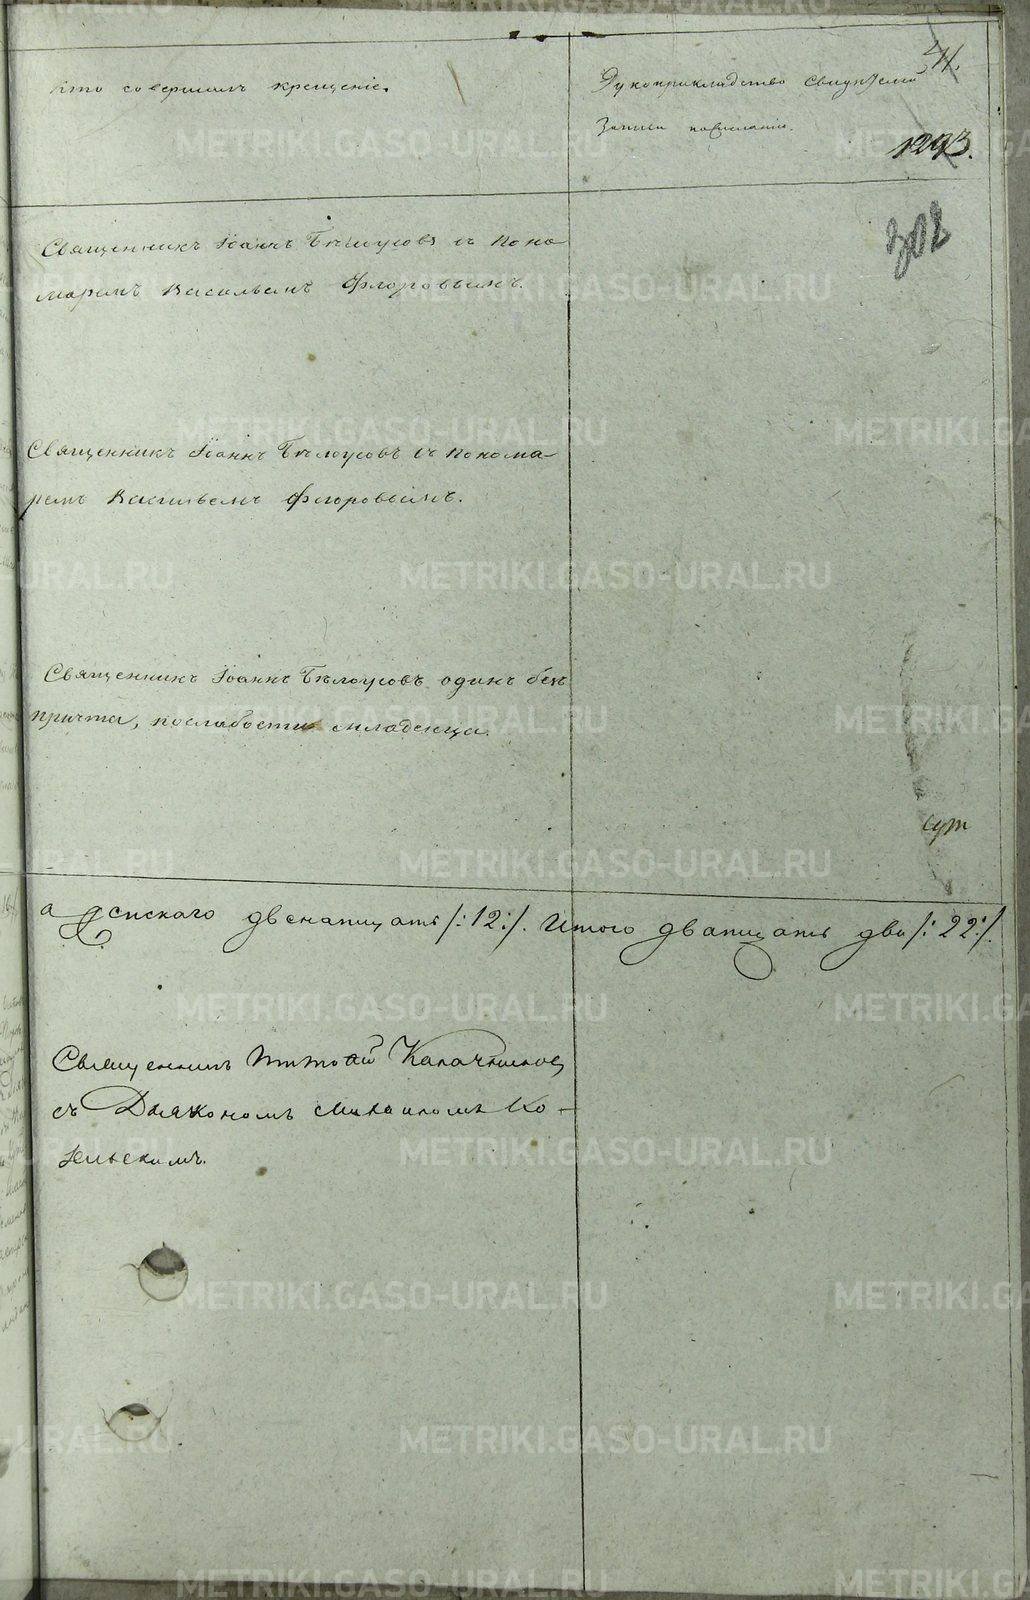 41.
Кто совершалъ крещеніе.
Рукоприкладство свидѣтелей
записи по желанію.
1293.
Священникъ Іоаннъ Бѣлоусовъ съ поно
маремъ Васильемъ Флоровымъ.
Священникъ Іоаннъ Бѣлоусовъ съ понома-
ремъ Васильемъ Флоровымъ.
Священникъ Іоаннъ Бѣлоусовъ одинъ безъ
причта, послабости младенца.
а женскаго двенатцать /:12:/. Итого дватцать два /:22:/.
Священникъ Калачниковъ
съ Дьякономъ Михаиломъ Ко-
METRIKI.GASO-URAL.RU